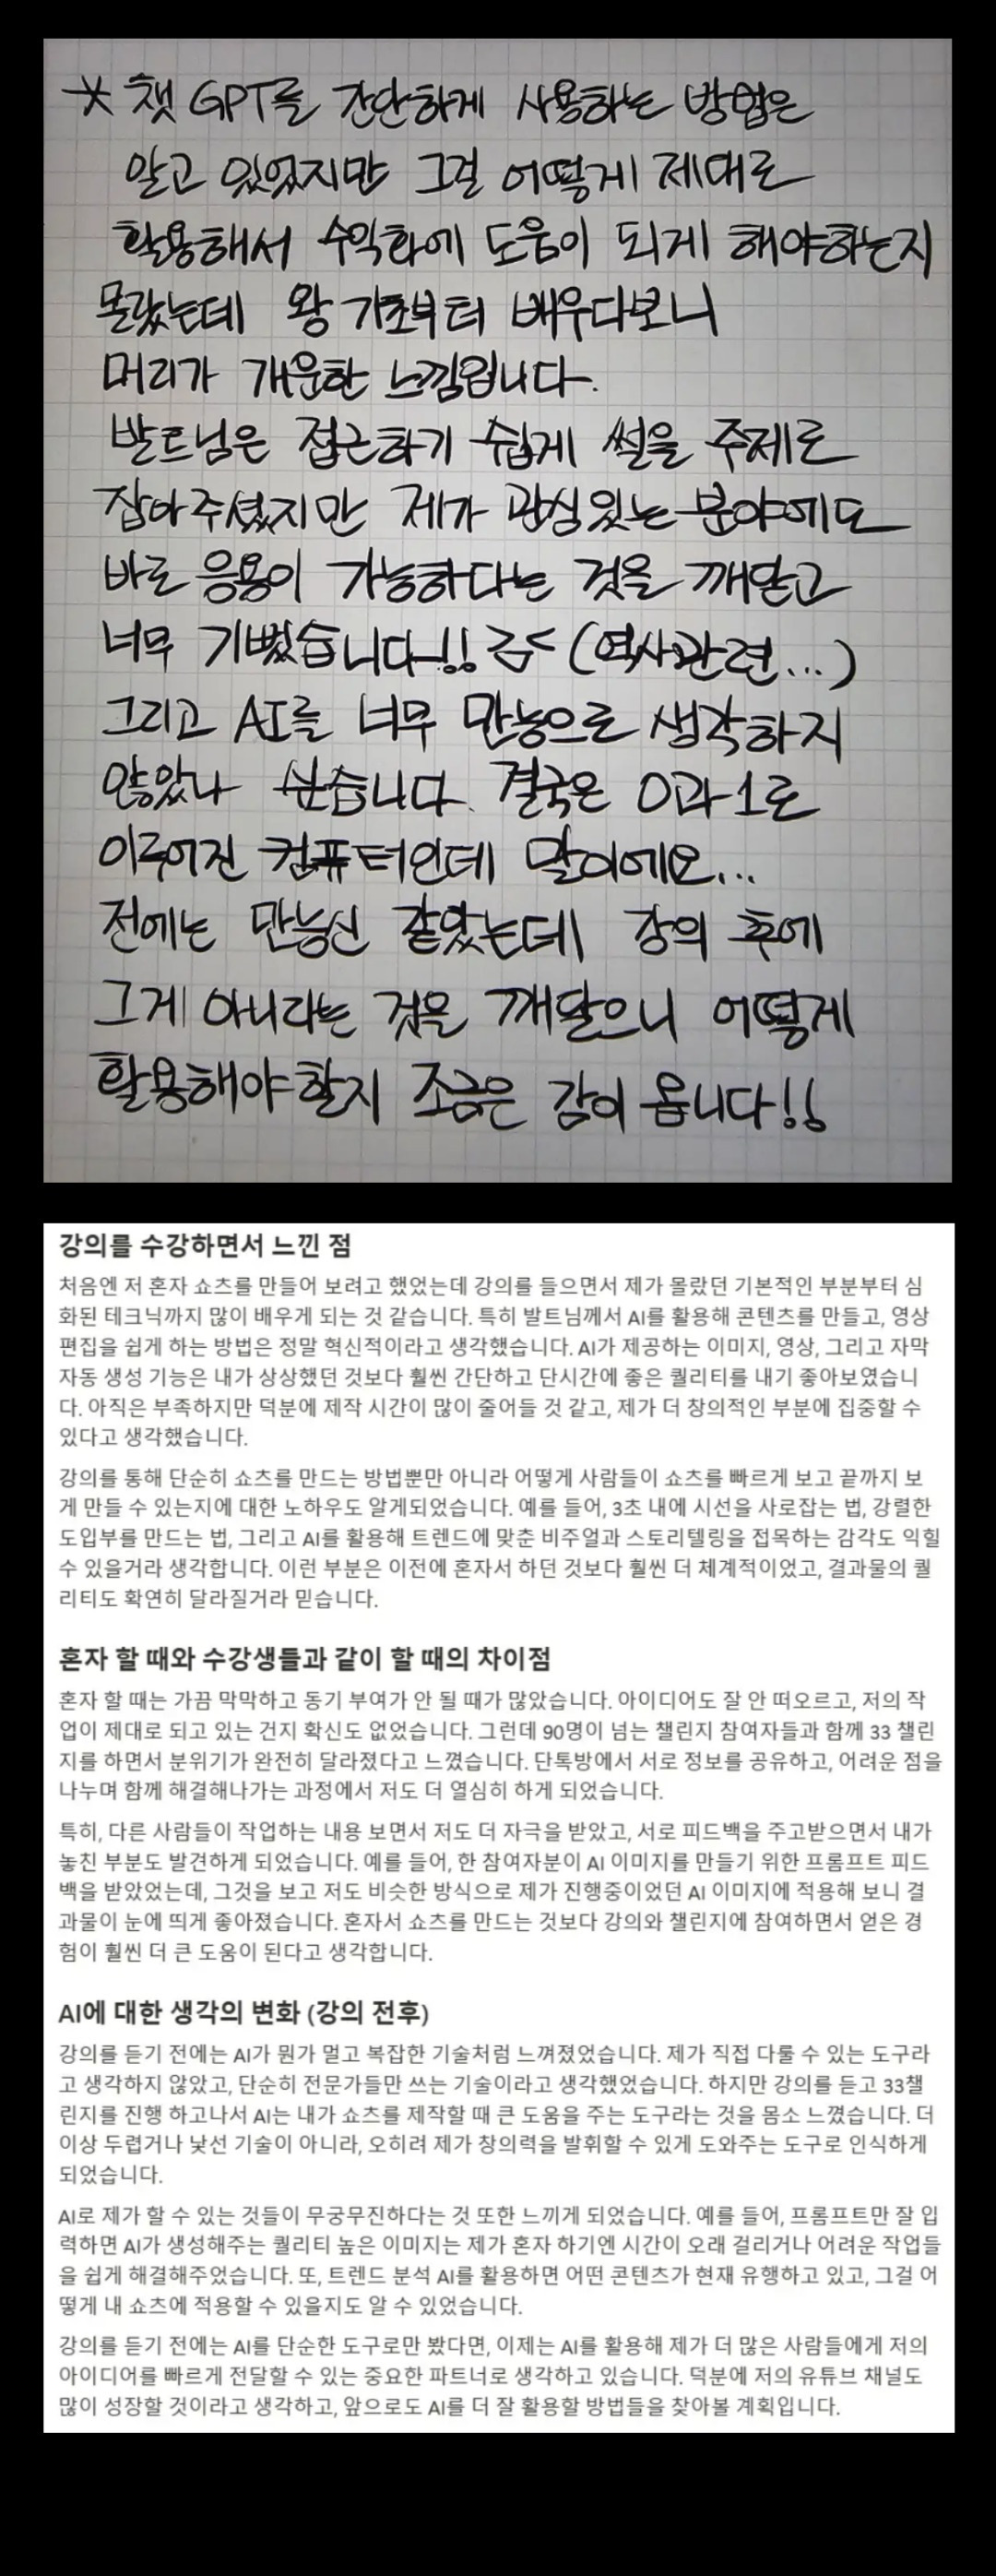 * 챗 GPT를 간단하게 사용하는 방법은
알고 있었지만 그걸 어떻게 제대로
활용해서 수익화에 도움이 되게 해야하는지
몰랐는데 왕 기초부터 배우다보니
머리가 개운한 느낌입니다.
발트님은 접근하기 쉽게 썰을 주제로
잡아주셨지만 제가 관심있는 분야에도
바로 응용이 가능하다는 것을 깨닫고
너무 기뻤습니다!! (역사관련...)
그리고 AI를 너무 만능으로 생각하지
않았나 싶습니다. 결국은 0과 1로
이루어진 컴퓨터인데 말이에요...
전에는 만능신 같았는데 강의 후에
그게 아니라는 것을 깨달으니 어떻게
활용해야 할지 조금은 감이 옵니다!!
강의를 수강하면서 느낀 점
처음엔 저 혼자 쇼츠를 만들어 보려고 했었는데 강의를 들으면서 제가 몰랐던 기본적인 부분부터 심
화된 테크닉까지 많이 배우게 되는 것 같습니다. 특히 발트님께서 AI를 활용해 콘텐츠를 만들고, 영상
편집을 쉽게 하는 방법은 정말 혁신적이라고 생각했습니다. AI가 제공하는 이미지, 영상, 그리고 자막
자동 생성 기능은 내가 상상했던 것보다 훨씬 간단하고 단시간에 좋은 퀄리티를 내기 좋아보였습니
다. 아직은 부족하지만 덕분에 제작 시간이 많이 줄어들 것 같고, 제가 더 창의적인 부분에 집중할 수
있다고 생각했습니다.
강의를 통해 단순히 쇼츠를 만드는 방법뿐만 아니라 어떻게 사람들이 쇼츠를 빠르게 보고 끝까지 보
게 만들 수 있는지에 대한 노하우도 알게되었습니다. 예를 들어, 3초 내에 시선을 사로잡는 법, 강렬한
도입부를 만드는 법, 그리고 AI를 활용해 트렌드에 맞춘 비주얼과 스토리텔링을 접목하는 감각도 익힐
수 있을거라 생각합니다. 이런 부분은 이전에 혼자서 하던 것보다 훨씬 더 체계적이었고, 결과물의 퀄
리티도 확연히 달라질거라 믿습니다.
혼자 할 때와 수강생들과 같이 할 때의 차이점
혼자 할 때는 가끔 막막하고 동기 부여가 안 될 때가 많았습니다. 아이디어도 잘 안 떠오르고, 저의 작
업이 제대로 되고 있는 건지 확신도 없었습니다. 그런데 90명이 넘는 챌린지 참여자들과 함께 33 챌린
지를 하면서 분위기가 완전히 달라졌다고 느꼈습니다. 단톡방에서 서로 정보를 공유하고, 어려운 점을
나누며 함께 해결해나가는 과정에서 저도 더 열심히 하게 되었습니다.
특히, 다른 사람들이 작업하는 내용 보면서 저도 더 자극을 받았고, 서로 피드백을 주고받으면서 내가
놓친 부분도 발견하게 되었습니다. 예를 들어, 한 참여자분이 AI 이미지를 만들기 위한 프롬프트 피드
백을 받았었는데, 그것을 보고 저도 비슷한 방식으로 제가 진행중이었던 AI 이미지에 적용해 보니 결
과물이 눈에 띄게 좋아졌습니다. 혼자서 쇼츠를 만드는 것보다 강의와 챌린지에 참여하면서 얻은 경
험이 훨씬 더 큰 도움이 된다고 생각합니다.
AI에 대한 생각의 변화 (강의 전후)
강의를 듣기 전에는 AI가 뭔가 멀고 복잡한 기술처럼 느껴졌었습니다. 제가 직접 다룰 수 있는 도구라
고 생각하지 않았고, 단순히 전문가들만 쓰는 기술이라고 생각했었습니다. 하지만 강의를 듣고 33챌
린지를 진행 하고나서 AI는 내가 쇼츠를 제작할 때 큰 도움을 주는 도구라는 것을 몸소 느꼈습니다. 더
이상 두렵거나 낯선 기술이 아니라, 오히려 제가 창의력을 발휘할 수 있게 도와주는 도구로 인식하게
되었습니다.
AI로 제가 할 수 있는 것들이 무궁무진하다는 것 또한 느끼게 되었습니다. 예를 들어, 프롬프트만 잘 입
력하면 AI가 생성해주는 퀄리티 높은 이미지는 제가 혼자 하기엔 시간이 오래 걸리거나 어려운 작업들
을 쉽게 해결해주었습니다. 또, 트렌드 분석 AI를 활용하면 어떤 콘텐츠가 현재 유행하고 있고, 그걸 어
떻게 내 쇼츠에 적용할 수 있을지도 알 수 있었습니다.
강의를 듣기 전에는 AI를 단순한 도구로만 봤다면, 이제는 AI를 활용해 제가 더 많은 사람들에게 저의
아이디어를 빠르게 전달할 수 있는 중요한 파트너로 생각하고 있습니다. 덕분에 저의 유튜브 채널도
많이 성장할 것이라고 생각하고, 앞으로도 AI를 더 잘 활용할 방법들을 찾아볼 계획입니다.